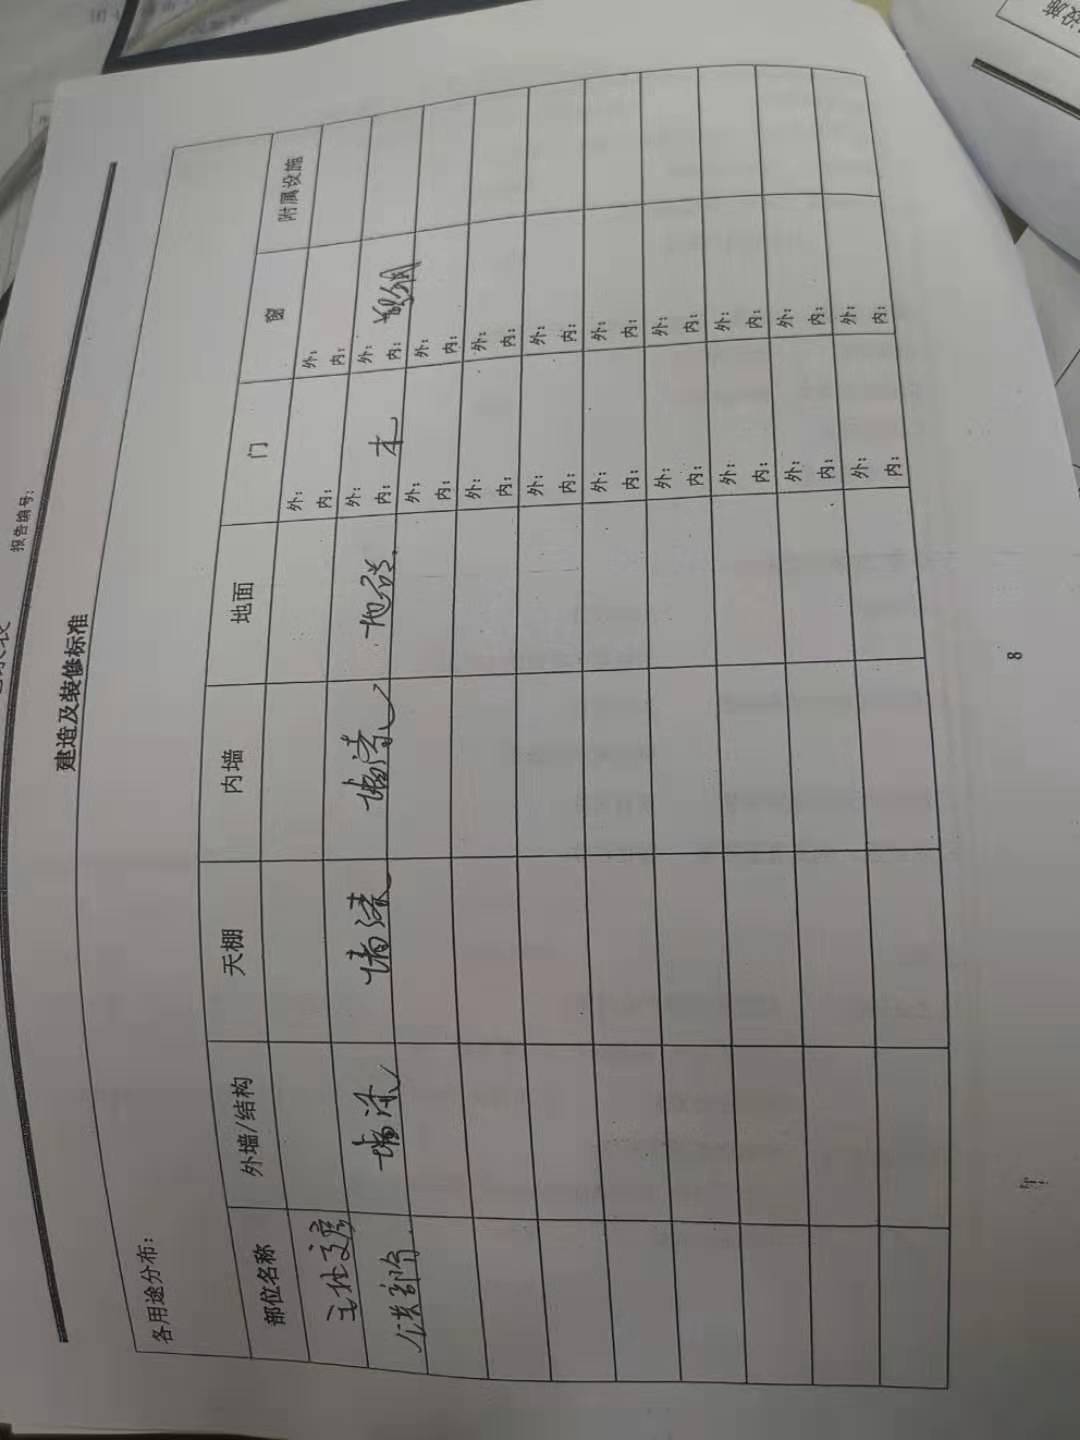 报告编号：
建造及装修标准
各用途分布：
部位名称 外墙/结构 天棚 内墙 地面 门 窗 附属设施
外： 外：
内： 内：
公共部分 墙漆 墙漆 墙漆 地砖 外： 外：
内：木 内：
外： 外：
内： 内：
外： 外：
内： 内：
外： 外：
内： 内：
外： 外：
内： 内：
外： 外：
内： 内：
外： 外：
内： 内：
外： 外：
内： 内：
外： 外：
内： 内：
8